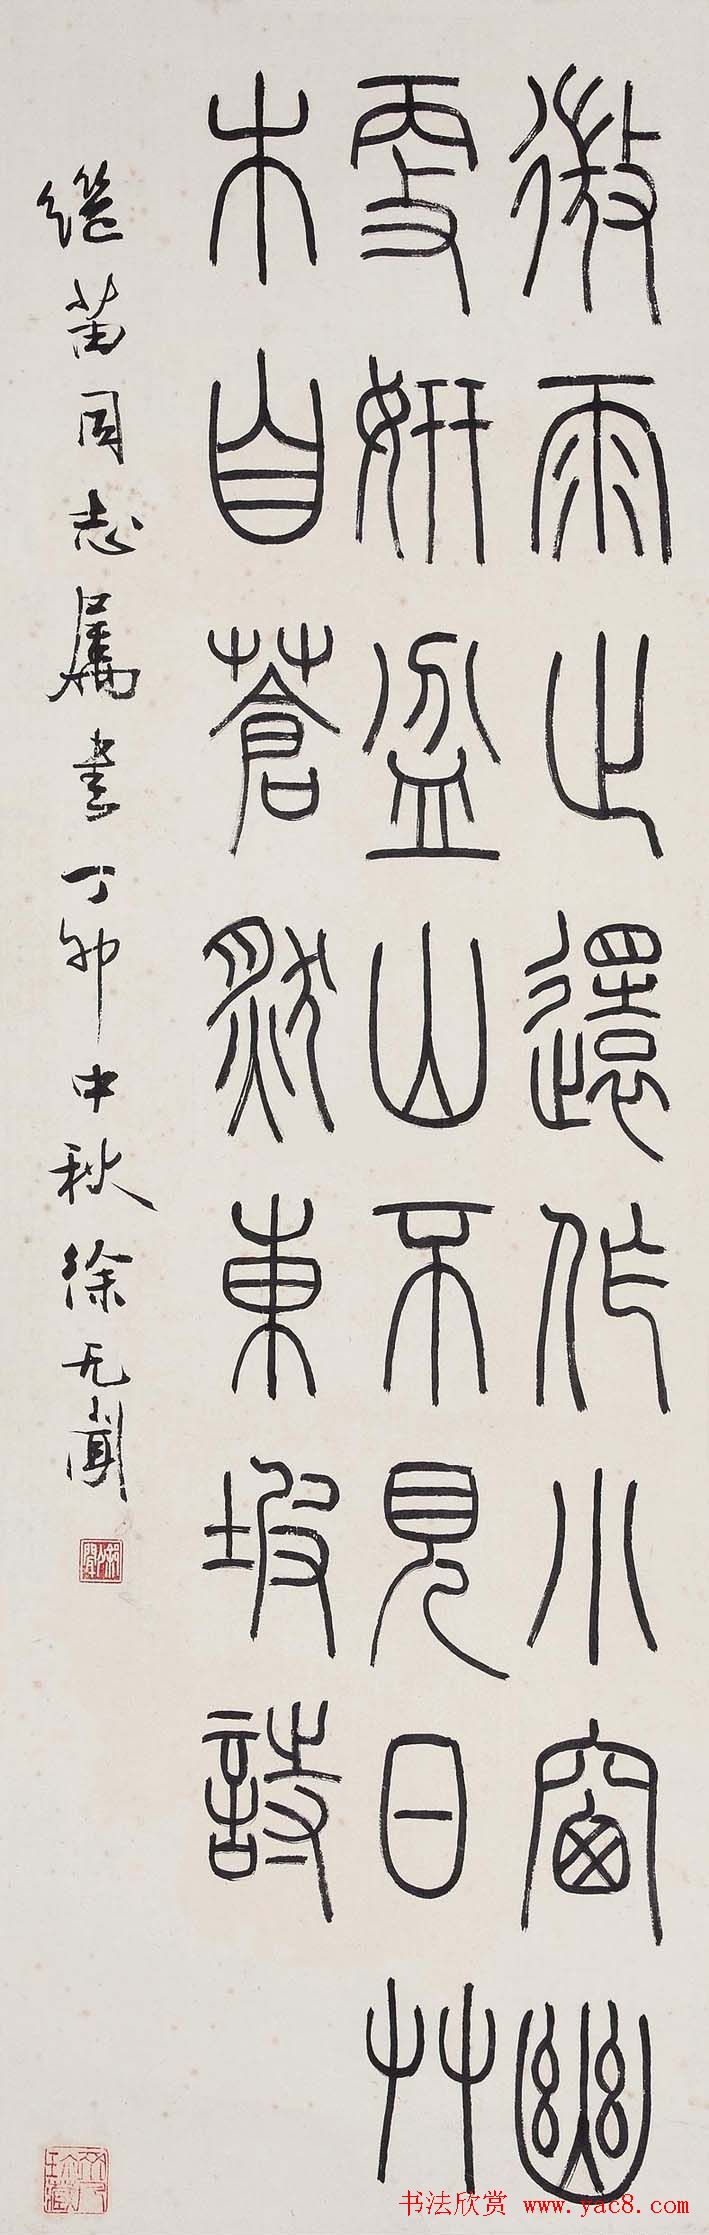 微雨止還作小窗幽
更妍盆山不見日艸
木自蒼然東坡詩
继苗同志属書丁卯中秋徐无聞
书法欣赏 www.yac8.com